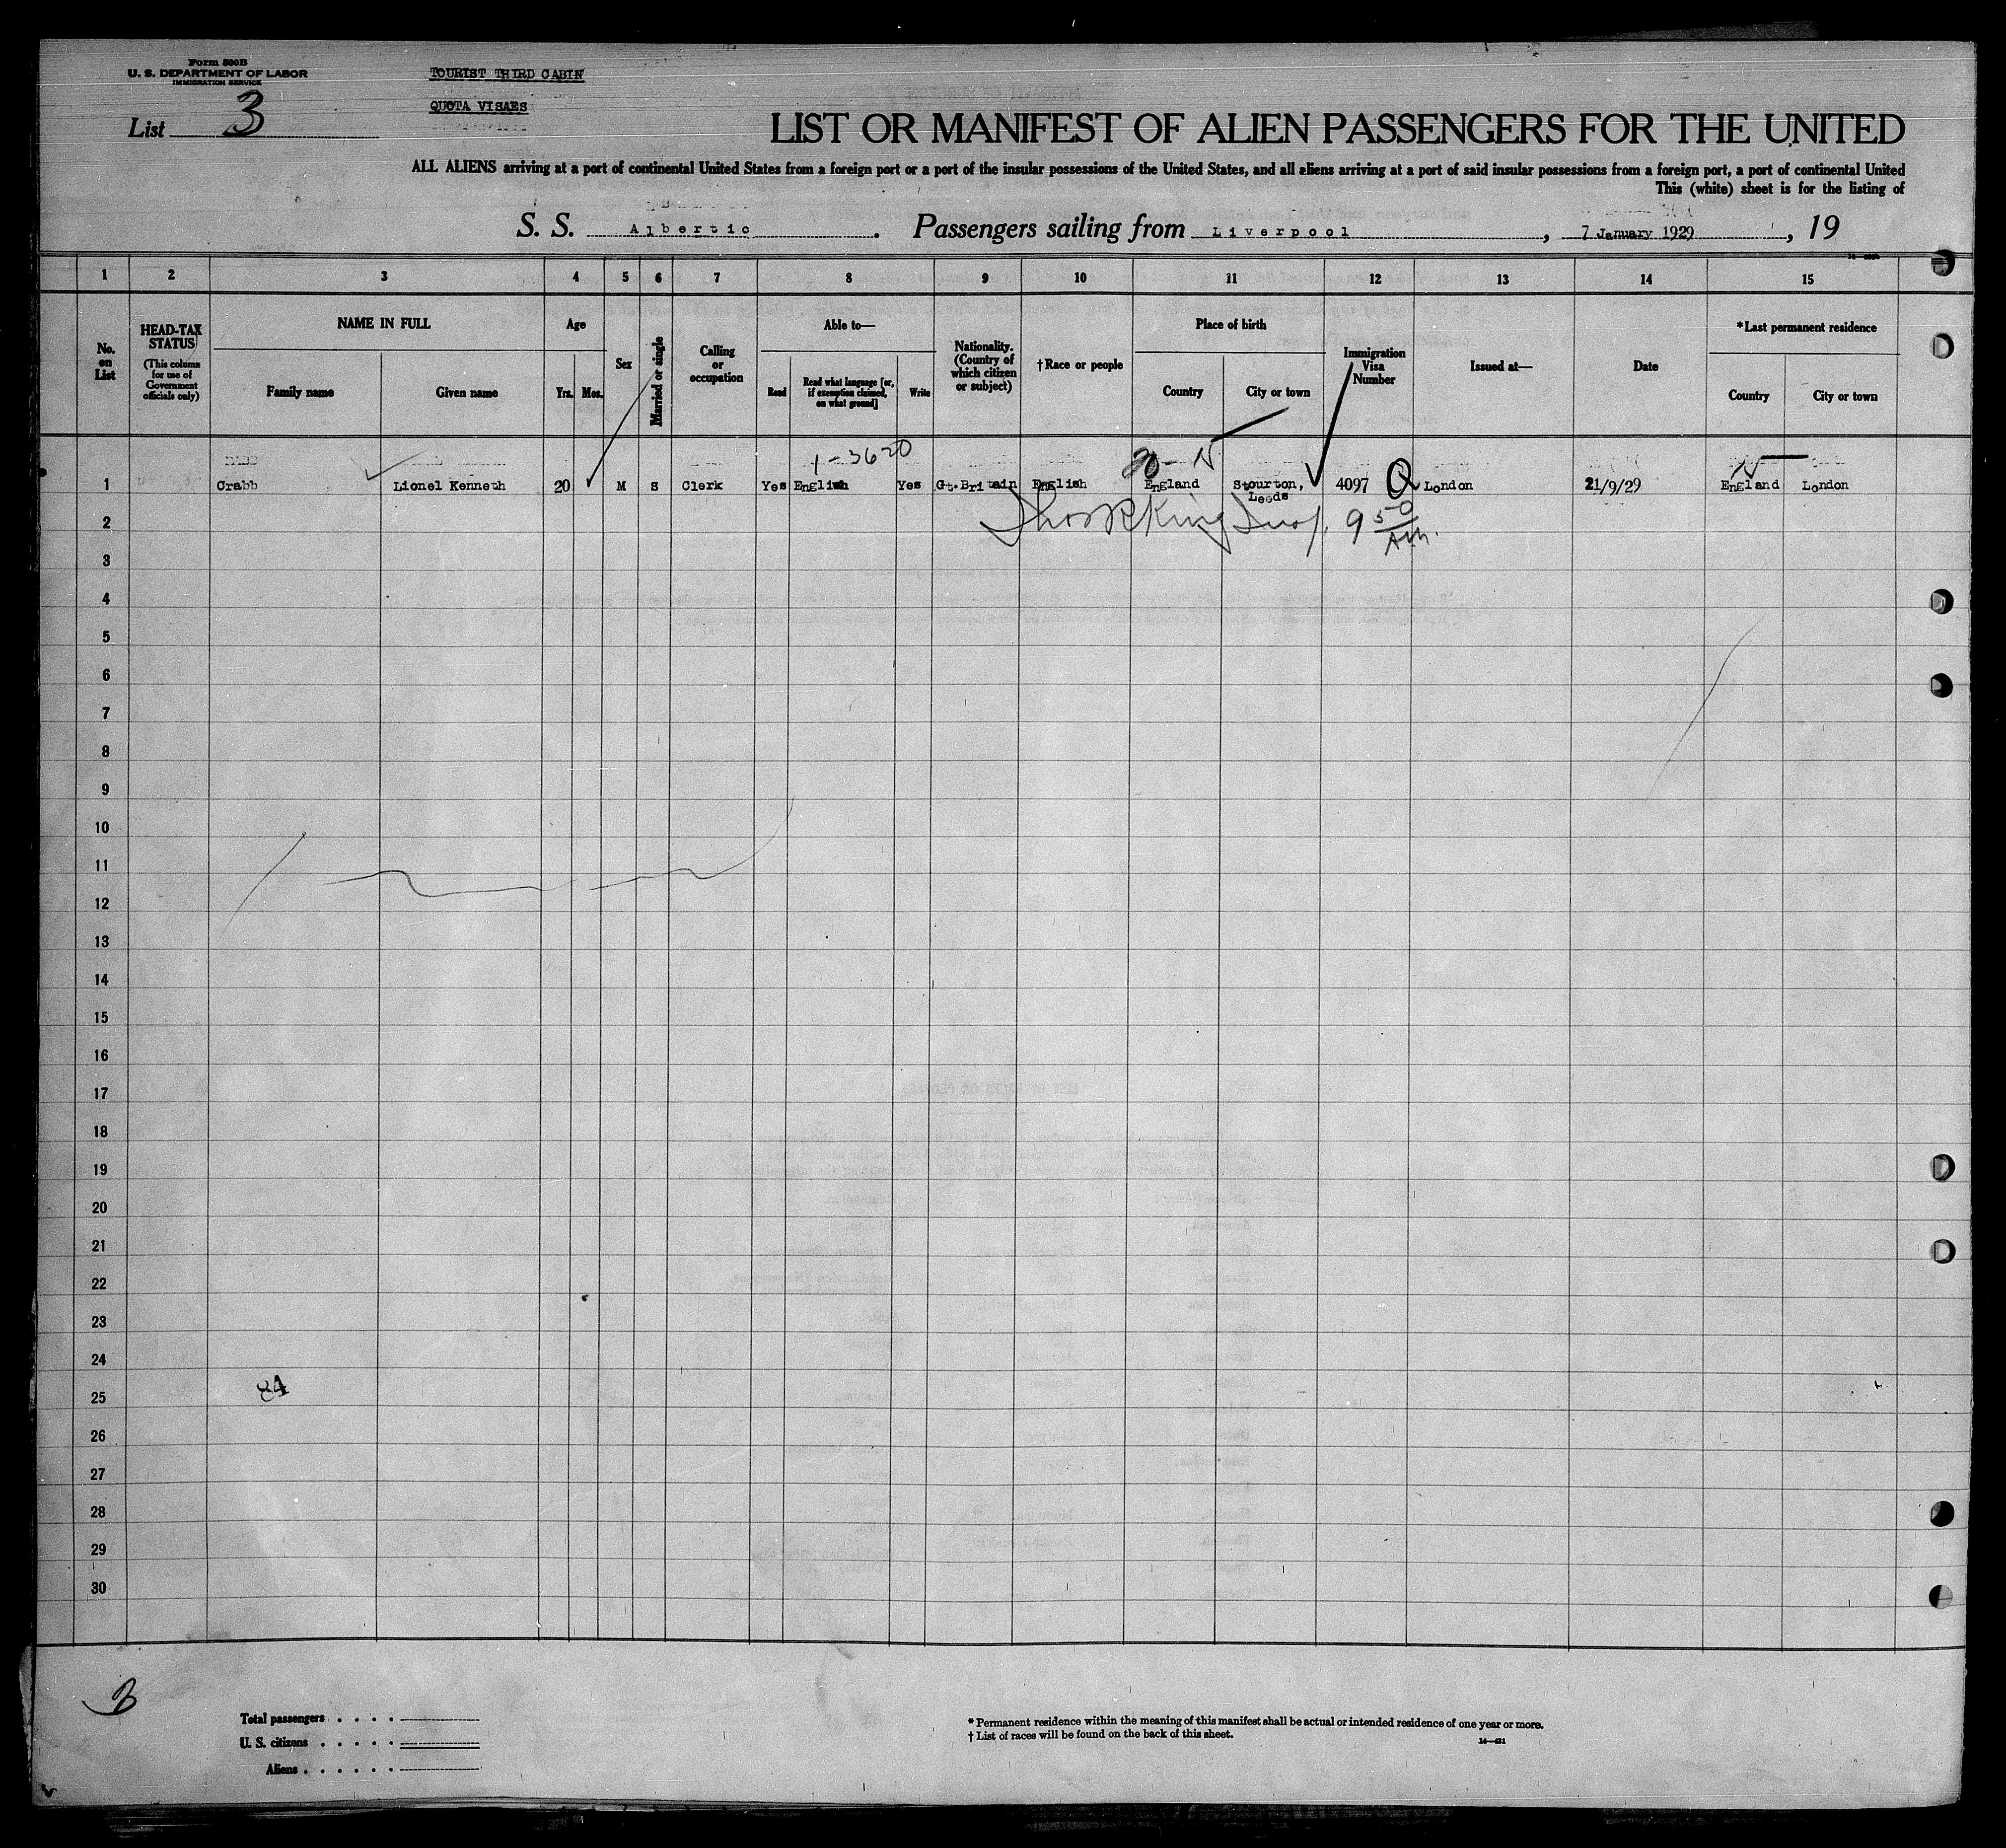 Form 500B
U. S. DEPARTMENT OF LABOR
IMMIGRATION SERVICE
TOURIST THIRD CABIN
QUOTA VISAES
List 3
LIST OR MANIFEST OF ALIEN PASSENGERS FOR THE UNITED
ALL ALIENS arriving at a port of continental United States from a foreign port or a port of the insular possessions of the United States, and all aliens arriving at a port of said insular possessions from a foreign port, a port of continental United
This (white) sheet is for the listing of
S. S. Albertic. Passengers sailing from Liverpool, 7 January 1929, 19
1 2 3 4 5 6 7 8 9 10 11 12 13 14 15
No. on List
HEAD-TAX STATUS (This column for use of Government officials only)
NAME IN FULL
Family name Given name
Age
Yrs. Mos.
Sex
Married or single
Calling or occupation
Able to—
Read Read what language [or, if exemption claimed, on what ground] Write
Nationality. (Country of which citizen or subject)
†Race or people
Place of birth
Country City or town
Immigration Visa Number
Issued at—
Date
*Last permanent residence
Country City or town
1-3620
1 Crabb Lionel Kenneth 20 M S Clerk Yes English Yes Gt.Britain English England Stourton, Leeds 4097 Q London 21/9/29 England London
2 9 50 AM.
3
4
5
6
7
8
9
10
11
12
13
14
15
16
17
18
19
20
21
22
23
24
25 84
26
27
28
29
30
3
Total passengers . . . .
U. S. citizens . . . . .
Aliens . . . . . .
* Permanent residence within the meaning of this manifest shall be actual or intended residence of one year or more.
† List of races will be found on the back of this sheet.